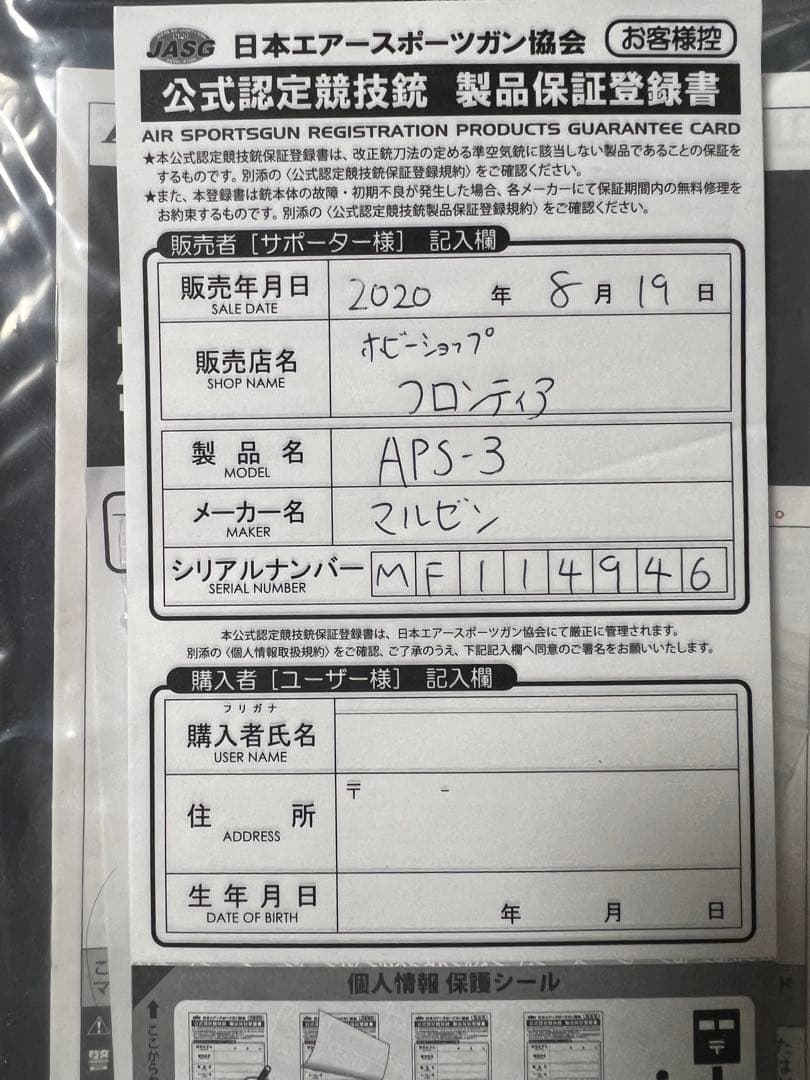 JASG 日本エアースポーツガン協会 お客様控
公式認定競技銃 製品保証登録書
AIR SPORTSGUN REGISTRATION PRODUCTS GUARANTEE CARD
★本公式認定競技銃保証登録書は、改正銃刀法の定める準空気銃に該当しない製品であることの保証を
するものです。別添の〈公式認定競技銃保証登録規約〉をご確認ください。
★また、本登録書は銃本体の故障・初期不良が発生した場合、各メーカーにて保証期間内の無料修理を
お約束するものです。別添の〈公式認定競技銃製品保証登録規約〉をご確認ください。
販売者［サポーター様］ 記入欄
販売年月日 2020 年 8 月 19 日
SALE DATE
販売店名 ホビーショップ
SHOP NAME フロンティア
製品名 APS-3
MODEL
メーカー名 マルゼン
MAKER
シリアルナンバー MF114946
SERIAL NUMBER
本公式認定競技銃保証登録書は、日本エアースポーツガン協会にて厳正に管理されます。
別添の〈個人情報取扱規約〉をご確認、ご了承のうえ、下記記入欄へ同意のご署名をお願いいたします。
購入者［ユーザー様］ 記入欄
フリガナ
購入者氏名
USER NAME
住所 〒 -
ADDRESS
生年月日 年 月 日
DATE OF BIRTH
個人情報 保護シール
ここから